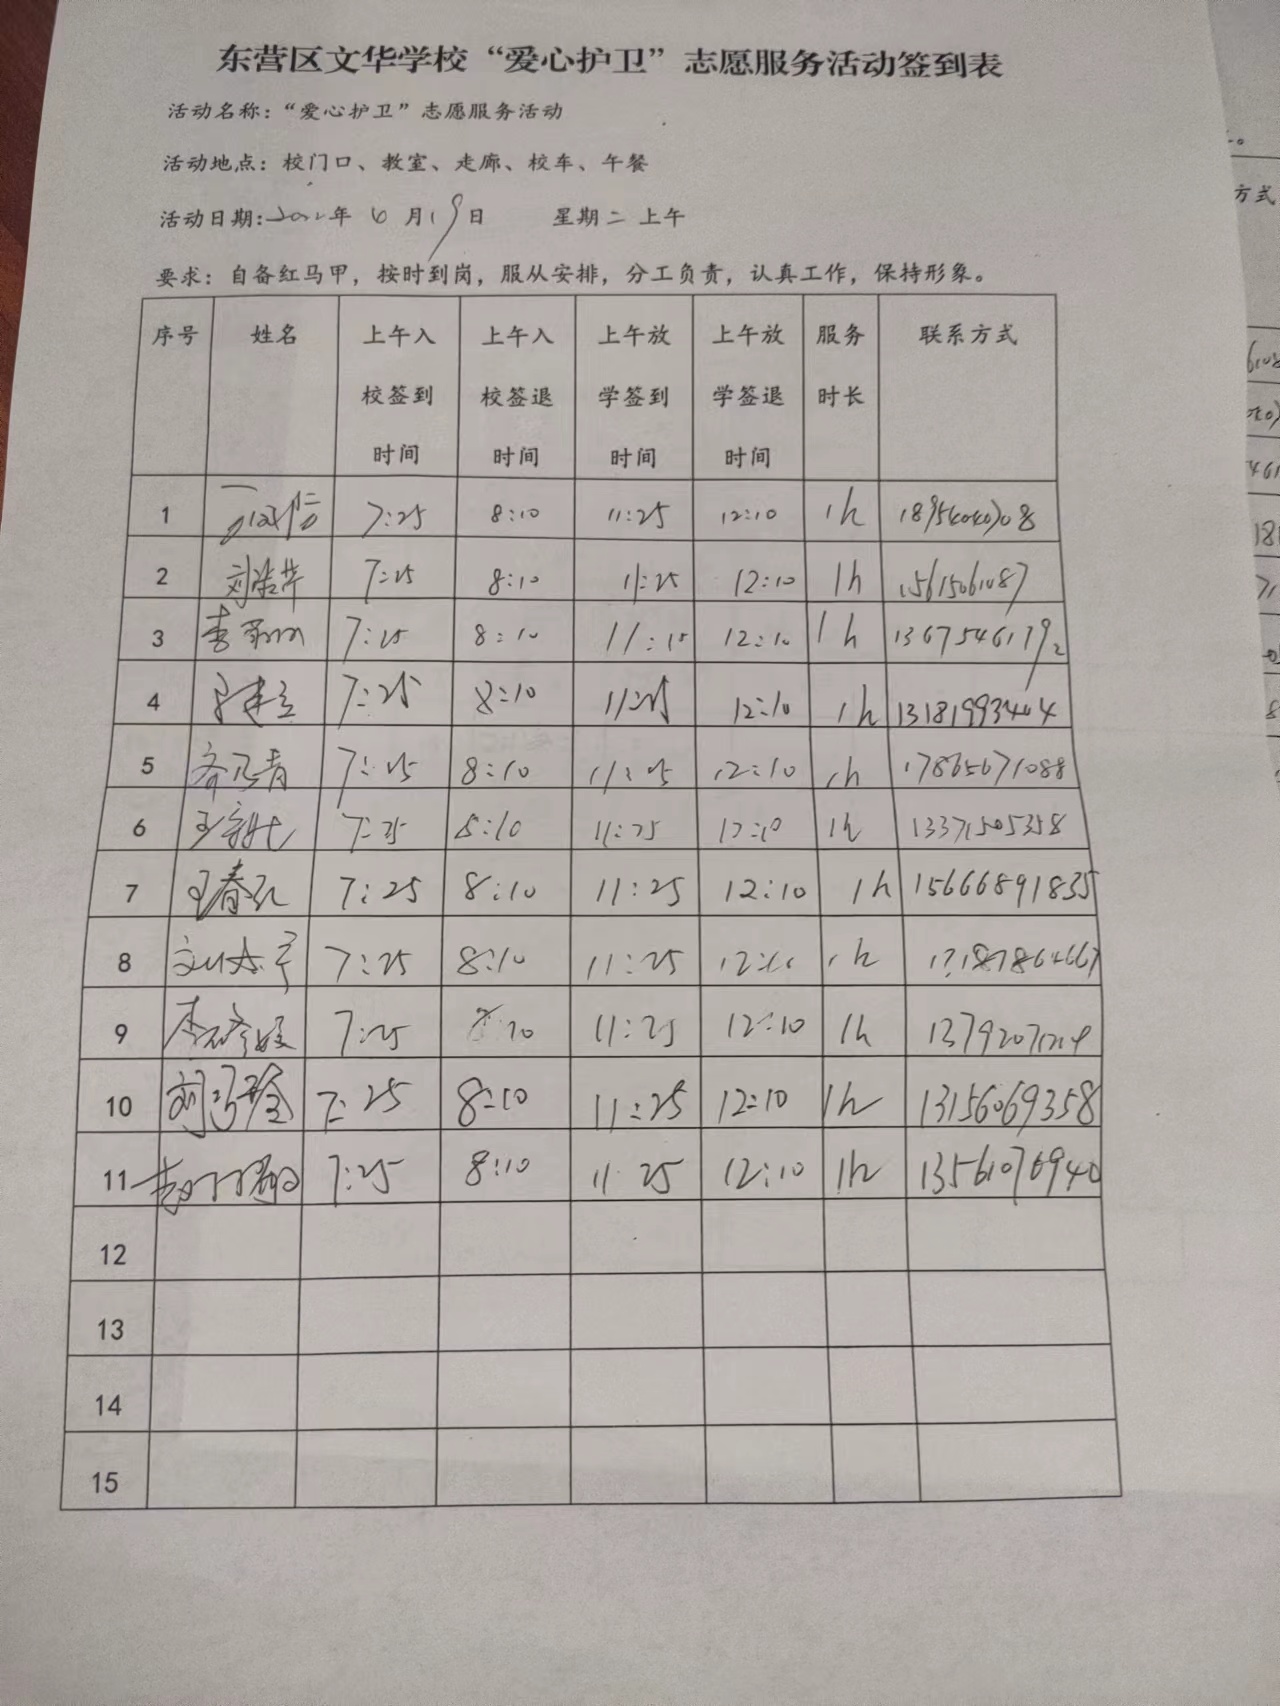 东营区文华学校“爱心护卫”志愿服务活动签到表
活动名称:“爱心护卫”志愿服务活动
活动地点: 校门口、教室、走廊、校车、午餐
活动日期: 年 6 月19日 星期二 上午
要求: 自备红马甲, 按时到岗, 服从安排, 分工负责, 认真工作, 保持形象。
序号 姓名 上午入校签到时间 上午入校签退时间 上午放学签到时间 上午放学签退时间 服务时长 联系方式
1 7:25 8:10 11:25 12:10 1h
2 7:25 8:10 11:25 12:10 1h 15615061087
3 7:25 8:10 11:25 12:10 1h 13675461792
4 7:25 8:10 11:25 12:10 1h 13181993404
5 7:25 8:10 11:25 12:10 1h 17865671088
6 7:25 8:10 11:25 12:10 1h 13371505358
7 王春 7:25 8:10 11:25 12:10 1h 15666891835
8 7:25 8:10 11:25 12:10 1h
9 7:25 8:10 11:25 12:10 1h
10 7:25 8:10 11:25 12:10 1h 13156069358
11 7:25 8:10 11 25 12:10 1h 13561076940
12
13
14
15
方式